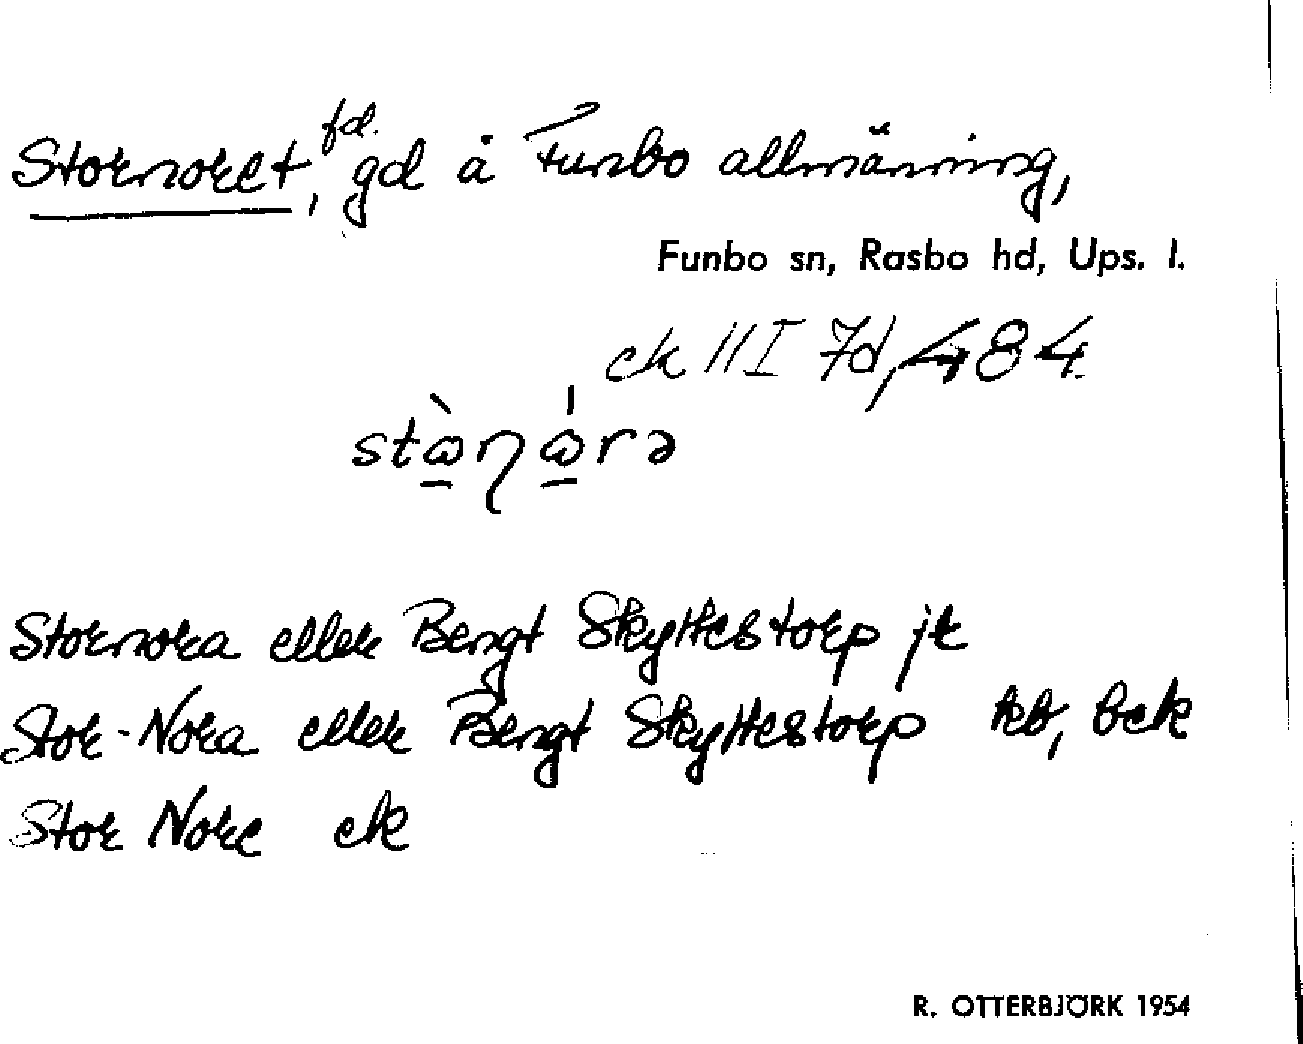 Stornoret, fd. gd å Funbo allmänning,
Funbo sn, Rasbo hd, Ups. l.
ek III 7d, 484
Stornora eller Bengt Skyttestorp jr
Stor-Nora eller Bengt Skyttestorp kb, bek
Stor Nore ek
R. OTTERBJÖRK 1954